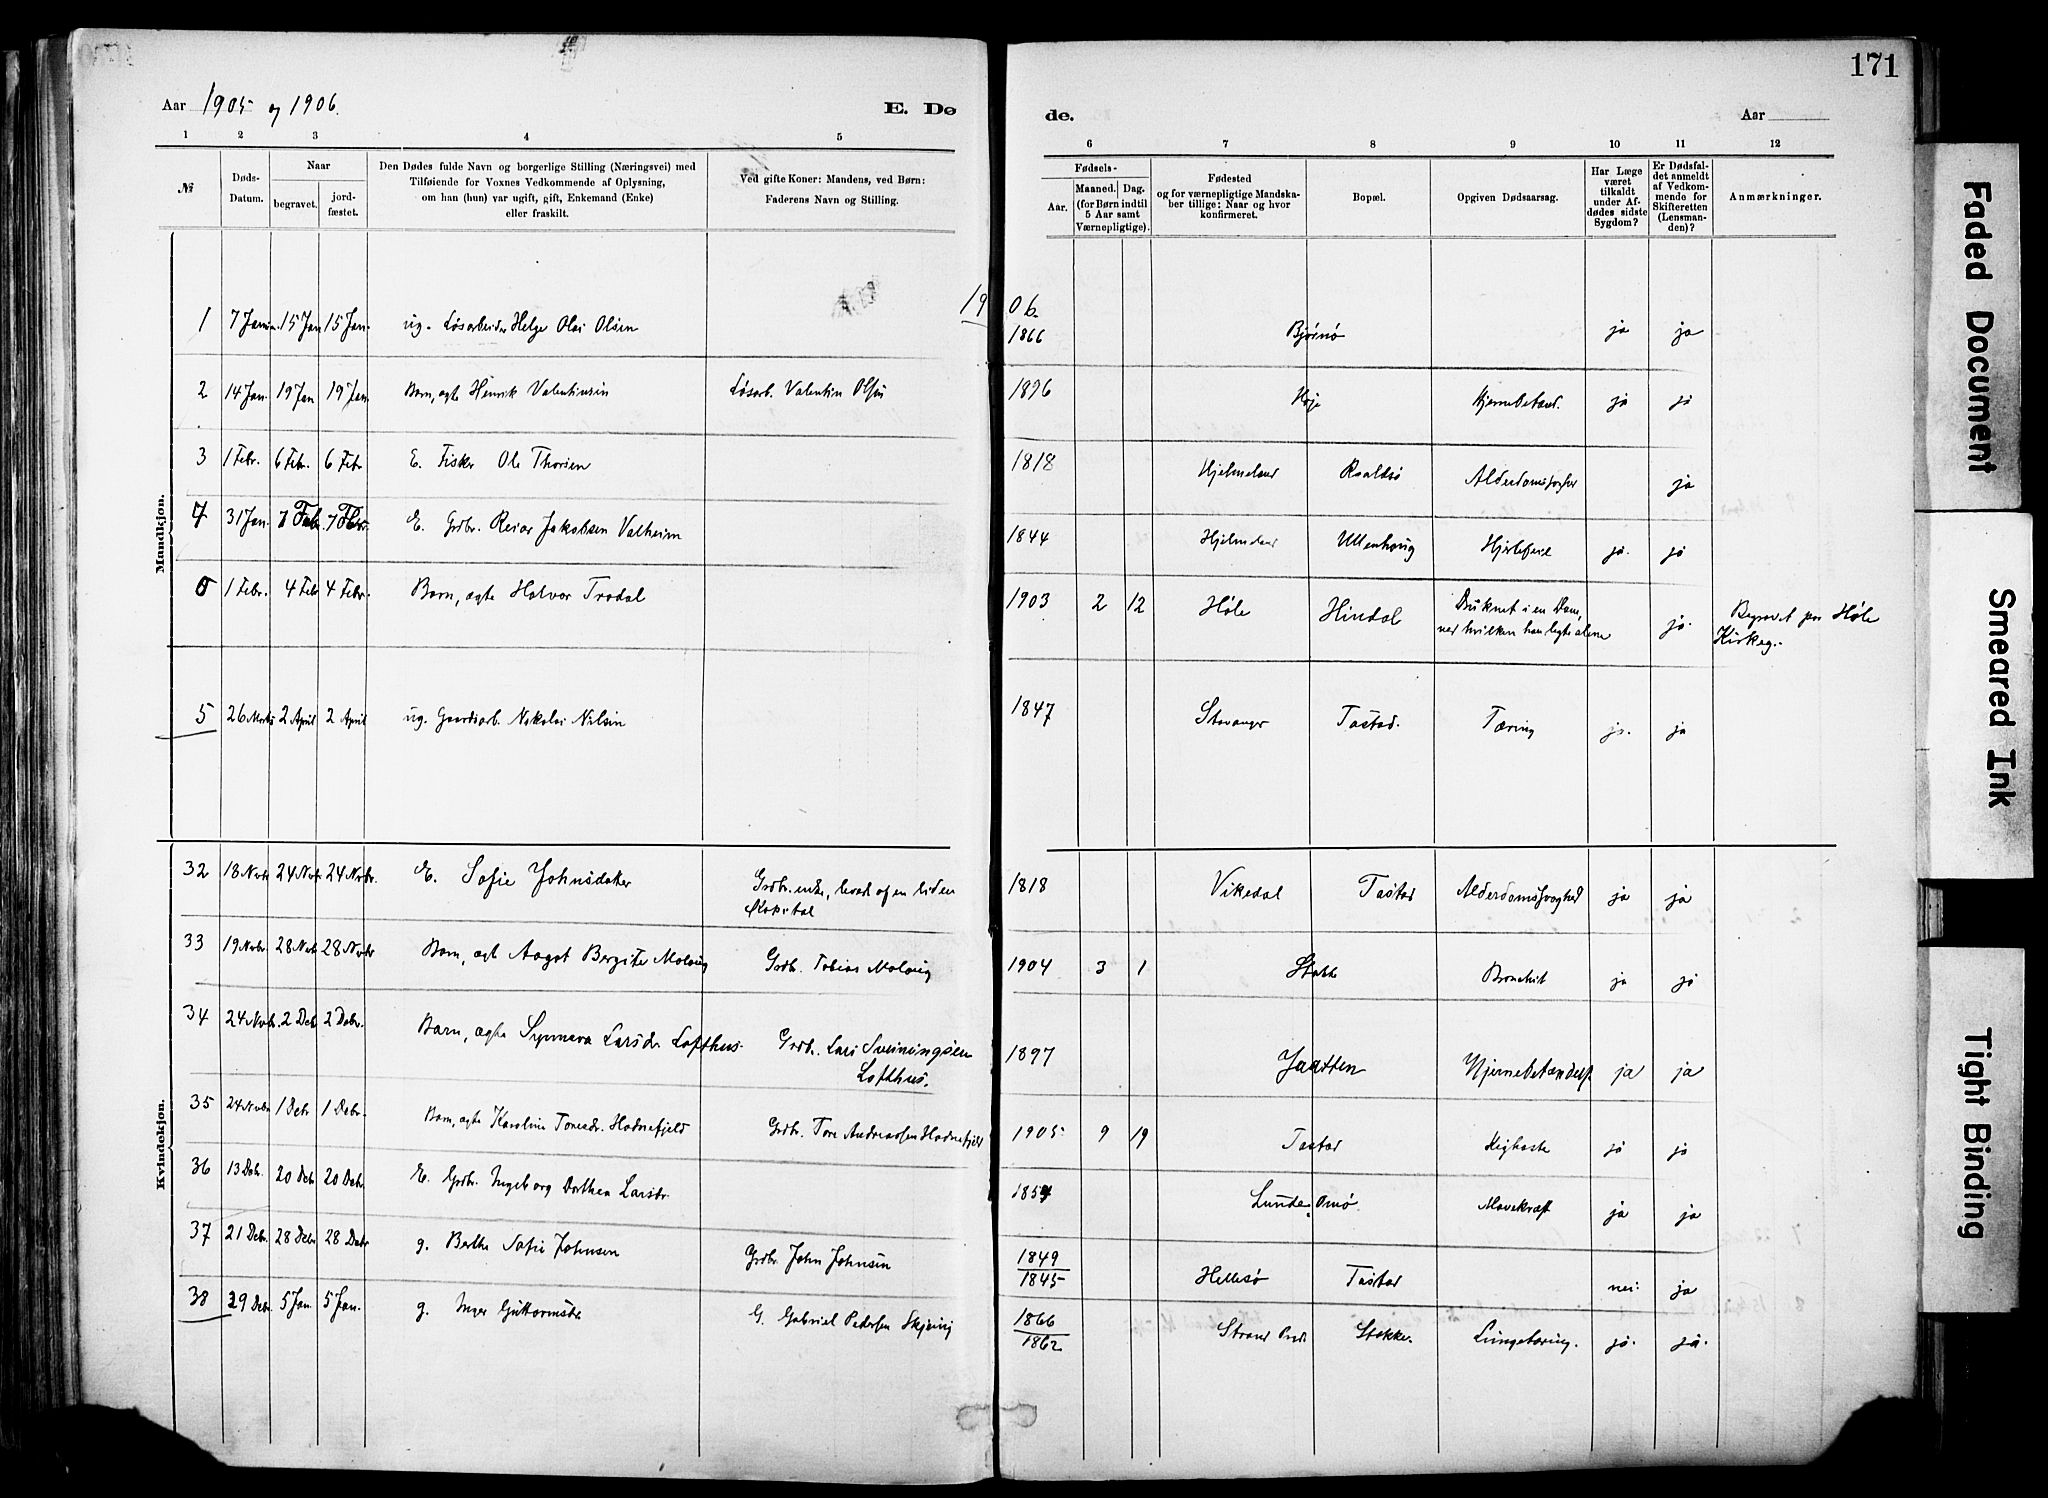 171
Aar 1905 og 1906.
E. Dø
de.
Aar
1 2 3 4 5 6 7 8 9 10 11 12
№
Døds-
Datum.
Naar
begravet.
jord-
fæstet.
Den Dødes fulde Navn og borgerlige Stilling (Næringsvei) med
Tilføiende for Voxnes Vedkommende af Oplysning,
om han (hun) var ugift, gift, Enkemand (Enke)
eller fraskilt.
Ved gifte Koner: Mandens, ved Børn:
Faderens Navn og Stilling.
Fødsels-
Aar.
Maaned. Dag.
(for Børn indtil
5 Aar samt
Værnepligtige).
Fødested
og for værnepligtige Mandska-
ber tillige: Naar og hvor
konfirmeret.
Bopæl.
Opgiven Dødsaarsag.
Har Læge
været
tilkaldt
under Af-
dødes sidste
Sygdom?
Er Dødsfal-
det anmeldt
af Vedkom-
mende for
Skifteretten
(Lensman-
den)?
Anmærkninger.
Mandkjøn.
1906.
1 7 Jan. 15 Jan 15 Jan. ug. Løsarbeider Helge Olai Olsen 1866 Bjørnø ja ja
2 14 Jan. 19 Jan 19 Jan Barn, ægte Henrik Valentinsen Løsarb. Valentin Olsen 1896 Hjernebetænd. ja ja
3 1 Febr. 6 Febr. 6 Febr E. Fisker Ole Thorsen 1818 Hjelmeland ja
4 31 Jan. 7 Febr. 7 Febr. E. Grdbr. Reiar Jakobsen Valheim 1844 Hjelmeland Ullenhaug Hjertefeil ja. ja
1 Febr. 4 Febr 4 Febr. Barn, ægte Halvor Tradal 1903 2 12 Høle Hindal Druknet i en Dam,
ved hvilken han legte alene ja. Begravet paa Høle
Kirkeg.
5 26 Marts 2 April 2 April ug. Gaardsarb. Nikolai Nilsen 1847 Stavanger Tastad. Tæring ja. ja
Kvindekjøn.
32 18 Novbr 24 Novbr 24 Novbr. E. Sofie Johnsdatter Grdbr.enke, levede af en liden
Kapital 1818 Vikedal Tastad Alderdomssvaghed ja ja
33 19 Novbr. 28 Novbr 28 Novbr Barn, ægte Aagot Bergite Molaug Grdb. Tobias Molaug 1904 3 1 Bronchit ja ja
34 24 Novbr. 2 Debr. 2 Debr. Barn, ægte Synneva Larsdr. Lofthus. Grdb. Lars Sveiningsen
Lofthus. 1897 Jaatten Hjernebetændelse ja ja
35 24 Novbr 1 Debr 1 Debr. Barn, ægte Karoline Toresdr. Hodnefjeld Grdbr. Tore Andreassen Hodnefjeld 1905 9 19 Tastad Kighoste ja ja
36 13 Debr. 20 Debr 20 Debr. E. Grdbr. Ingeborg Dorthea Larsdr. Lunde, Omø. Mavekræft ja ja
37 21 Debr. 28 Debr 28 Debr g. Berthe Sofie Johnsen Grdbr. John Johnsen 1849
1845 Hellesø Tastad nei: ja
38 29 Debr. 5 Jan. 5 Jan. g. Inger Guttormsdr G. Gabriel Pedersen Skjeivig 1866
1862 Strand Stokke. Lungetæring. ja. ja.
Faded Document
Smeared Ink
Tight Binding